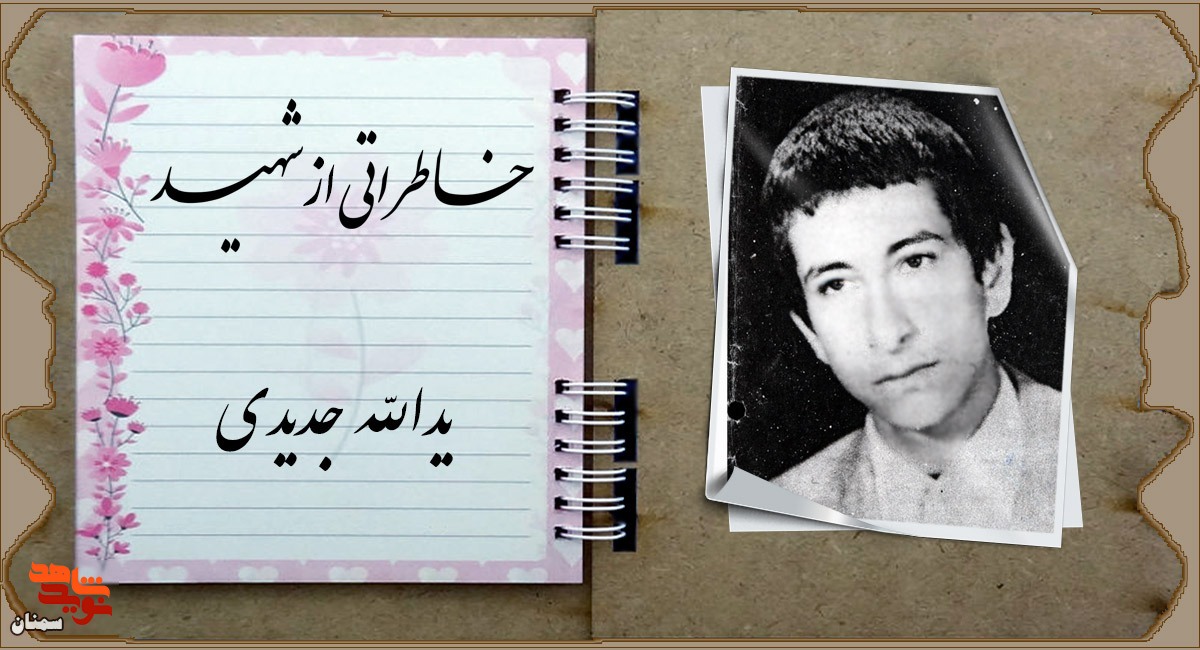 خاطراتی از شهید
یدالله جدیدی
نوید شاهد
سمنان